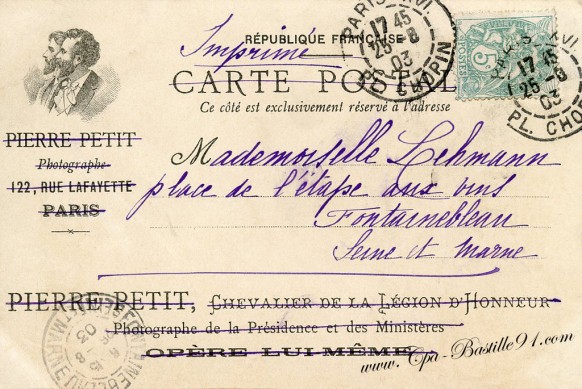 RÉPUBLIQUE FRANÇAISE
Imprimé
CARTE POSTALE
Ce côté est exclusivement réservé à l'adresse
PARIS XVI
17 45
25 - 8
03
PL. CHOPIN
5
17 45
25 - 8
03
PL. CHO
PIERRE PETIT
Photographe
122, RUE LAFAYETTE
PARIS
Mademoiselle Lehmann
place de l'étape aux vins
Fontainebleau
Seine et Marne
PIERRE PETIT, CHEVALIER DE LA LÉGION D'HONNEUR
Photographe de la Présidence et des Ministères
OPÈRE LUI-MÊME
www.Cpa-Bastille91.com